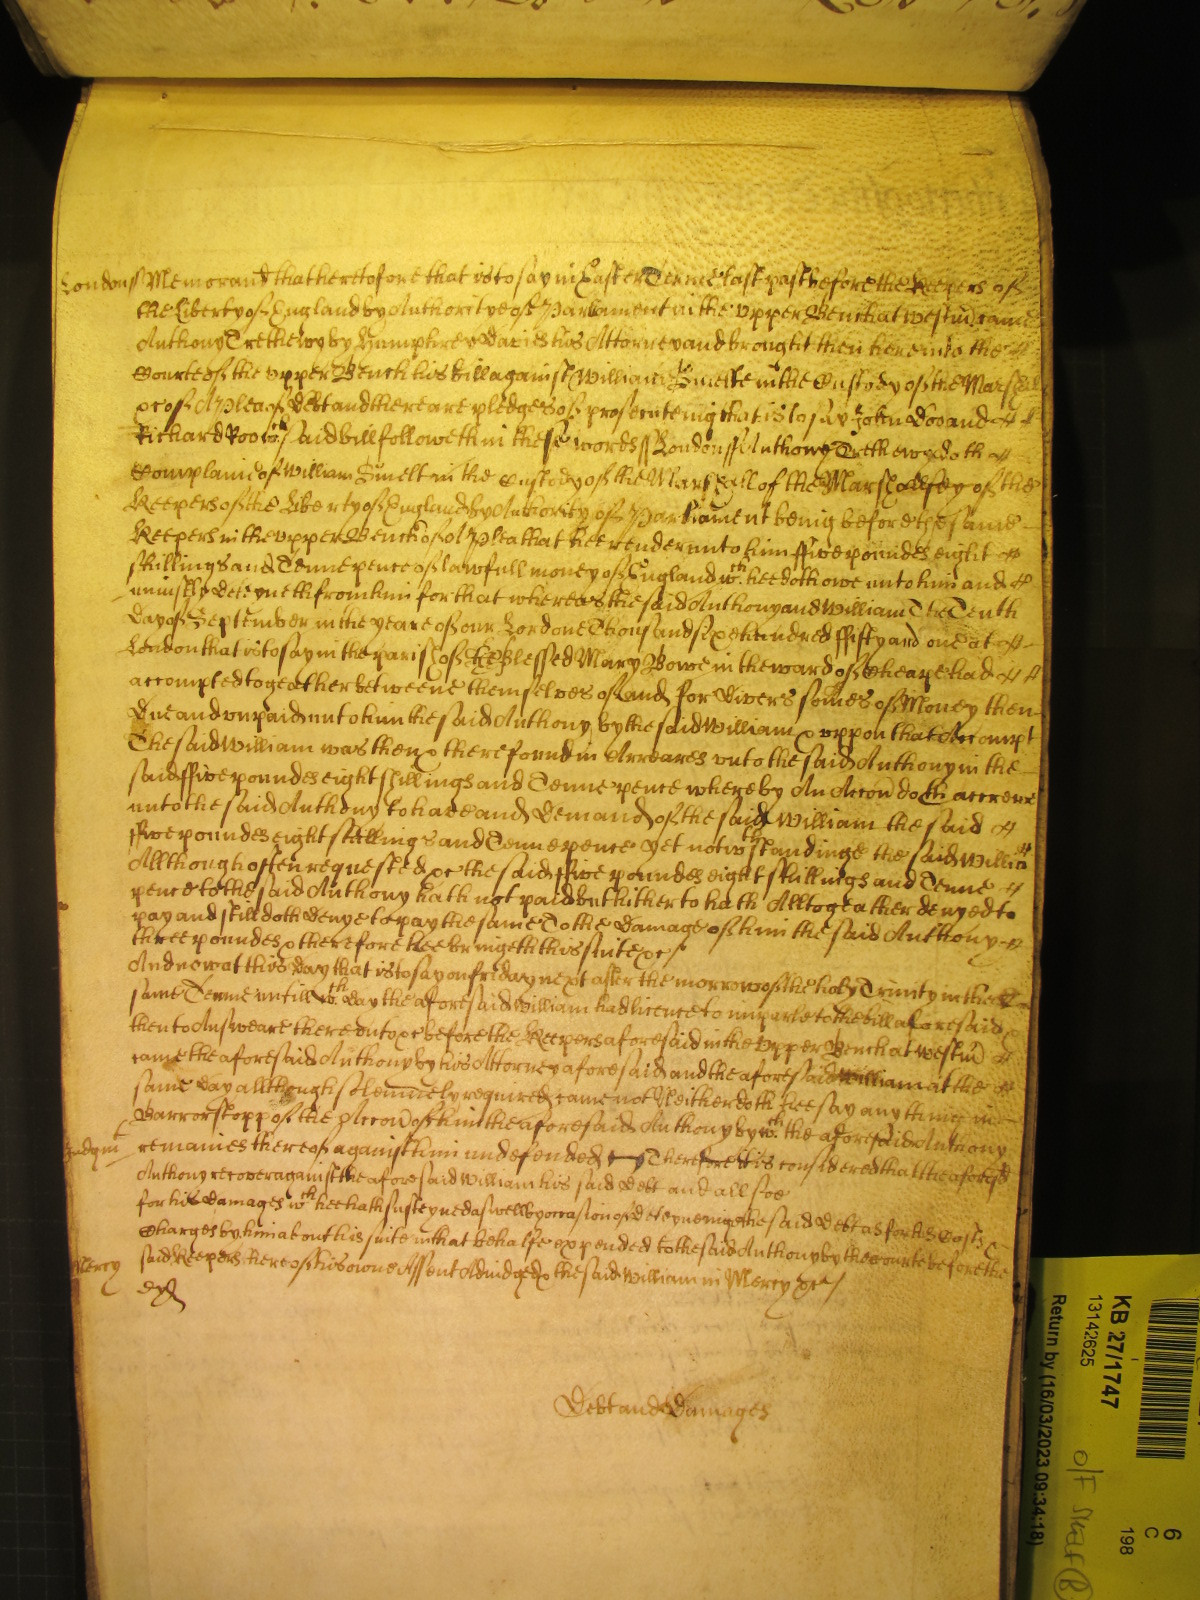 Londonss Memorand that heretofore that is to say in Easter Terme last past before the Keepers of
the Liberty of England by Authoritye of Parliament in the upper Bench at westm̃ came
Anthony Trethewy by Humphrey Davies his Attorney and brought then here into the
Courte of the upper Bench his bill against William Smelte in the Custody of the Marshall
&c of A plea of Debt and there are pledges of prosecuteing that is to say John Doo and
Richard Roo wch said bill followeth in these words ss London ss Anthony Trethewy doth
Complaine of William Smelt in the Custody of the Marshall of the Marshallsey of the
Keepers of the Liberty of England by Authority of Parliament being before the same
Keepers in the upper Bench of A Plea that hee render unto him ffive poundes eight
shillings and Tenne pence of lawfull money of England wch. hee doth owe unto him and
uniustly Deteyneth from him for that whereas the said Anthony and William The Tenth
Day of September in the yeare of our Lord one Thousand sixe hundred ffifty and one at
London that is to say in the parish of the Blessed Mary Bowe in the ward of Cheape had
accompted togeather betweene themselves of and for Divers somes of Money then
Due and unpaid unto him the said Anthony by the said William & uppon that Accompt
The said William was then & there found in Arreares unto the said Anthony in the
said ffive poundes eight shillings and Tenne pence whereby An Accõn doth accrewe
unto the said Anthony to have and Demand of the said William the said
ffive poundes eight shillings and Tenne pence yet notwthstandinge the said William
Allthough often requested &c the said ffive poundes eight shillings and Tenne
pence to the said Anthony hath not paid but hitherto hath Alltogeather denyed to
pay and still doth Denye to pay the same To the Damage of him the said Anthony
three poundes & therefore hee bringeth his suite &c
And now at this Day that is to say on friday next after the morrow of the holy Trinity in the
same Terme untill wch. Day the aforesaid William had licence to imparle to the bill aforesaid
then to Answeare thereunto &c before the Keepers aforesaid in the upper Bench at westm̃
came the aforesaid Anthony by his Attorney aforesaid and the aforesaid William at the
same Day allthough solemnely required came not Neither doth hee say any thinge in
Barr or stopp of the Accõn of him the aforesaid Anthony by wch. the aforesaid Anthony
Judgmt
remaines thereof against him undefended Therefore it is considered that the aforesd
Anthony recover against the aforesaid William his said Debt and allsoe
for his Damages wch hee hath susteyned aswell by occasion of Deteyneinge the said Debt as for his Costs &
Charges by him about his suite in that behalfe expended to the said Anthony by the Courte before the
Mercy
said Keepers here of his owne Assent Adiudged & the said William in Mercy &c
Debt and Damages
KB 27/1747
13142625
Return by (16/03/2023 09:34:18)
6
C
198